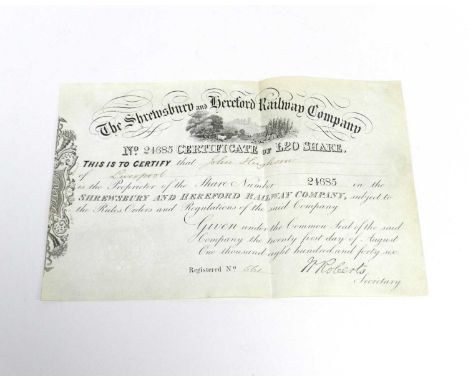 The Shrewsbury and Hereford Railway Company
No. 24685 CERTIFICATE OF £20 SHARE.
THIS IS TO CERTIFY that John
of Liverpool
is the Proprietor of the Share Number 24685 in the
SHREWSBURY AND HEREFORD RAILWAY COMPANY, subject to
the Rules, Orders and Regulations of the said Company.
GIVEN under the Common Seal of the said
Company the twenty first day of August
One thousand eight hundred and forty six.
Registered No.
W Roberts
Secretary